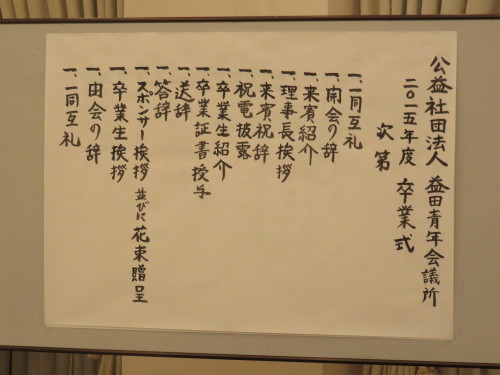 公益社団法人 益田青年会議所
二〇一五年度 卒業式
次第
一、一同互礼
一、開会の辞
一、来賓紹介
一、理事長挨拶
一、来賓祝辞
一、祝電披露
一、卒業生紹介
一、卒業証書授与
一、送辞
一、答辞
一、スポンサー挨拶 並びに 花束贈呈
一、卒業生挨拶
一、由会の辞
一、一同互礼